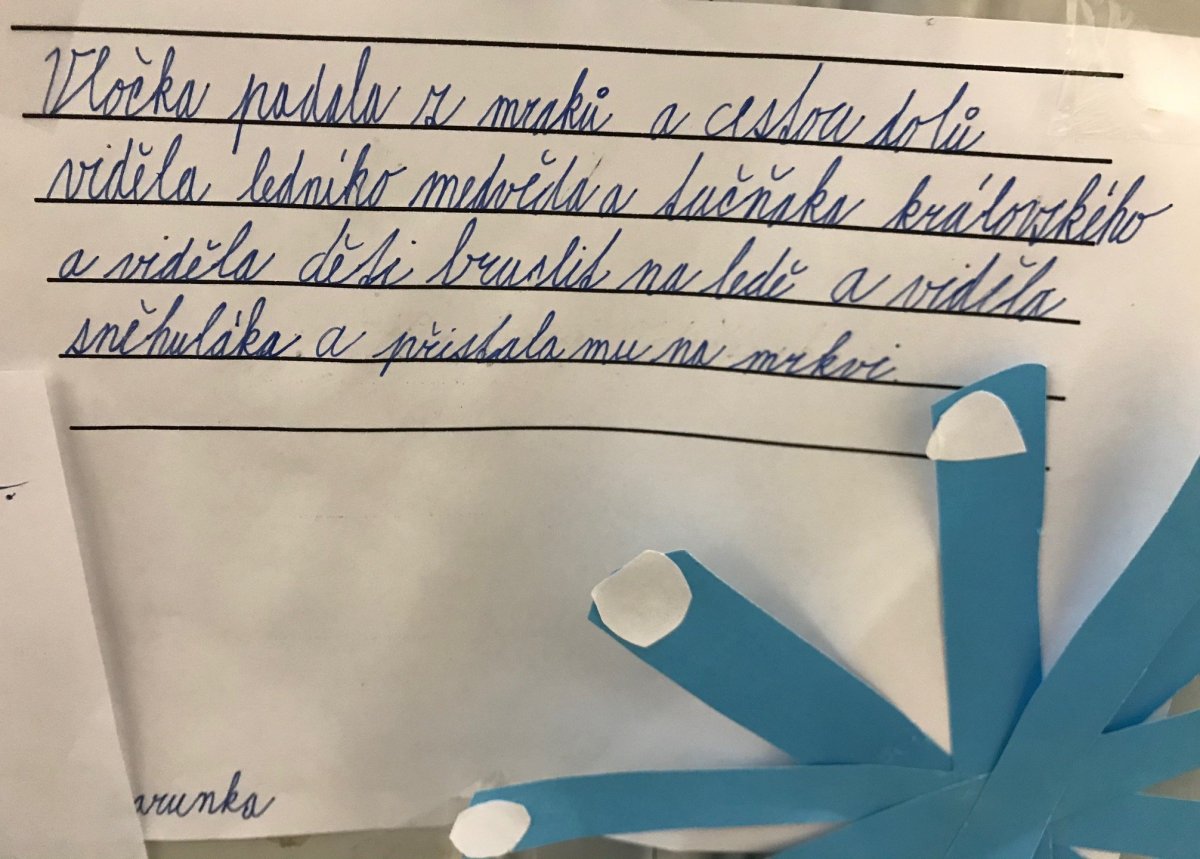 Vločka padala z mraků a cestou dolů
viděla ledního medvěda a tučňaka královského
a viděla děti bruslit na ledě a viděla
sněhuláka a přistala mu na mrkvi.
arunka